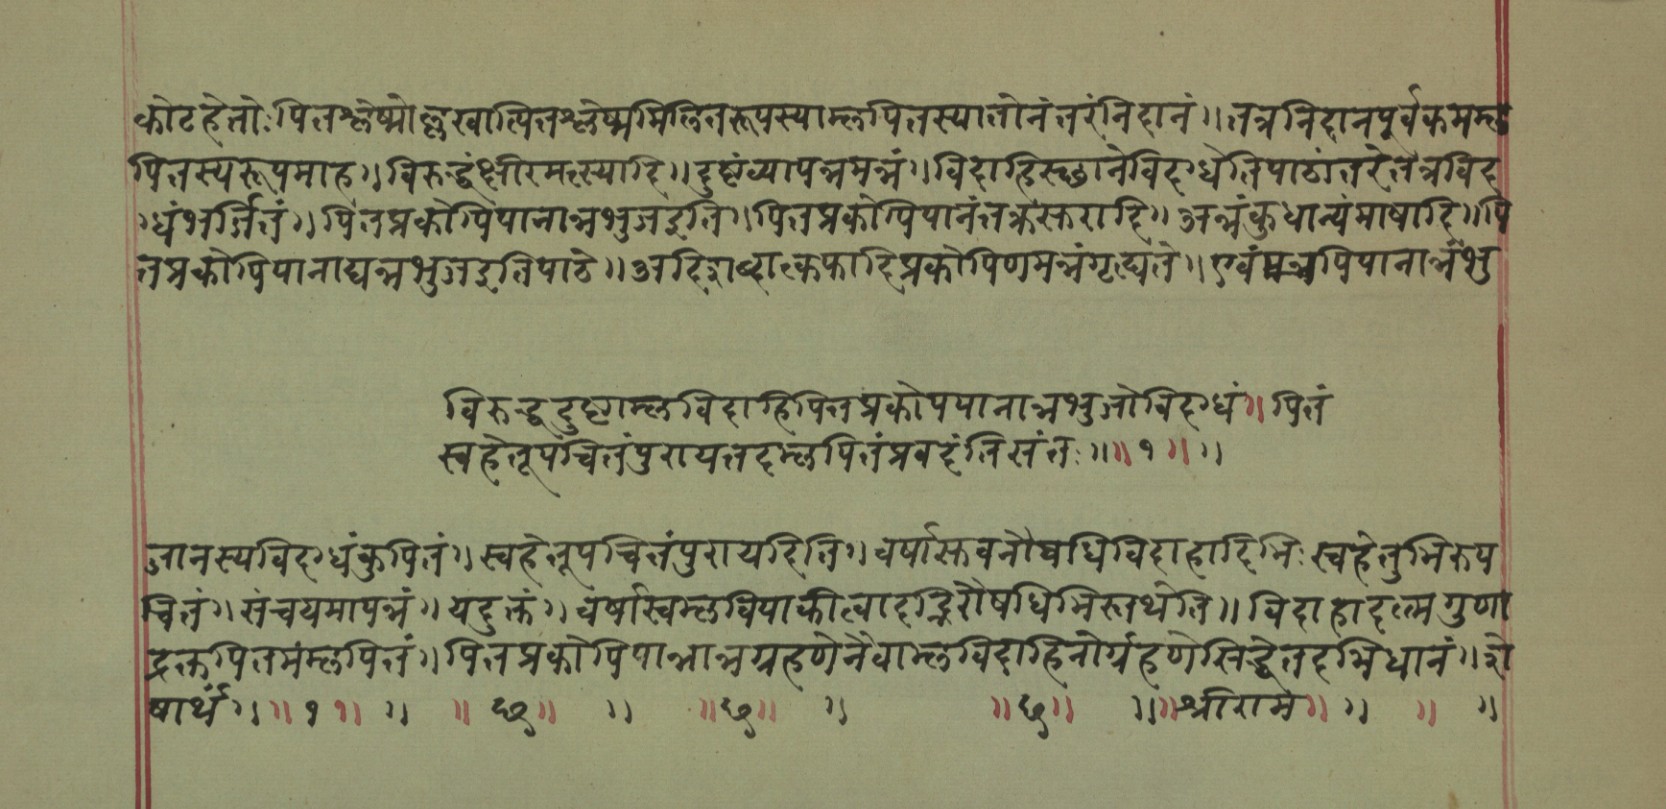 कोटहेतोःपितश्लेष्मोल्लुखात्पितश्लेष्ममिलितरूपस्याम्लपितस्यातोनंतरंनिदानं॥तत्रनिदानपूर्वकमम्ल
पितस्यरूपमाह॥विरुद्धंक्षीरमत्स्यादि॥दुष्टंव्यापन्नमन्नं॥विदाहिस्छानेविदग्धेतिपाठांतरंतत्रविद
ग्धंभर्जितं॥पितप्रकोपिपानान्नभुजइति॥पितप्रकोपिपानंतक्रसुरादि॥अन्नंकुधान्यंमाषादि॥पि
तप्रकोपिपानाद्यन्नभुजइतिपाठे॥अदिशब्दात्कफादिप्रकोपिणमन्नंगृह्यते॥एवंपिपानान्नंभु
विरुद्धदुष्टाम्लविदाहिपितप्रकोपपानान्नभुजोविदग्धं॥पितं
स्वहेतूपचितंपुरायतदम्लपितंप्रवदंतिसंतः॥॥१॥॥
जानस्यविदग्धंकुपितं॥स्वहेतूपचितंपुरायदिति॥वर्षास्तवनौषधिविदाहादिभिःस्वहेतुभिरुप
चितं॥संचयमापन्नं॥यदुक्तं॥वर्षास्वम्लविपाकीत्वादद्भिरौषधिभिस्तथेति॥विदाहादृत्मगुणा
द्रक्तपितमंम्लपितं॥पितप्रकोपिपाभान्नग्रहणेनैवाम्लविदाहिनोर्ग्रहणेसिद्धेतदभिधानं॥शे
षार्थं॥॥११॥॥॥छ॥॥॥छ॥॥॥छ॥॥॥श्रीराम॥॥॥॥